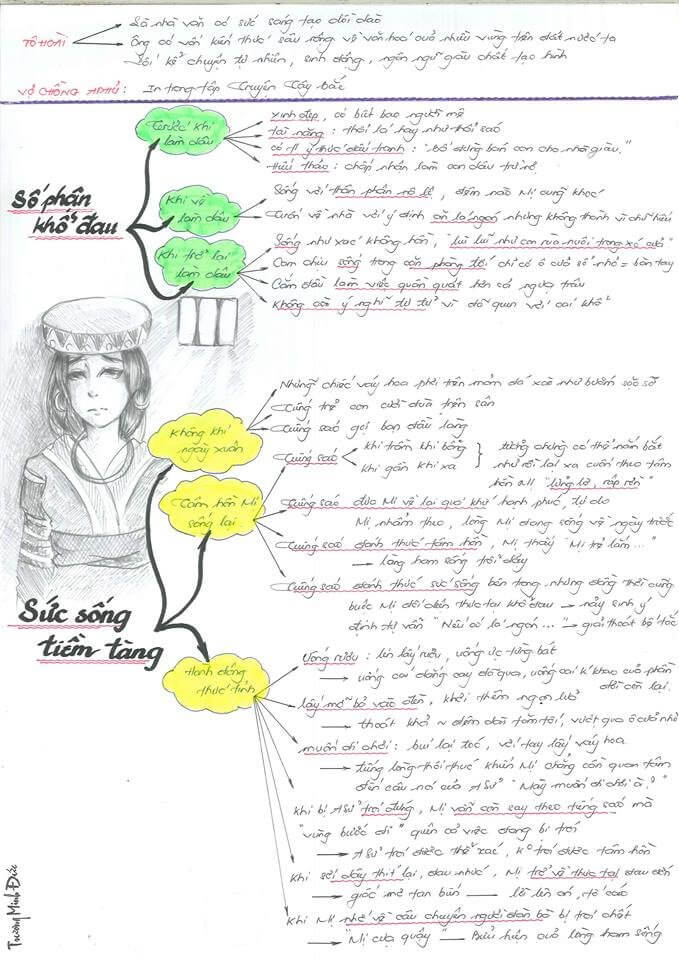 Là nhà văn có sức sáng tạo dồi dào
TÔ HOÀI
Ông có vốn kiến thức sâu rộng về văn hoá của nhiều vùng trên đất nước ta
Lối kể chuyện tự nhiên, sinh động, ngôn ngữ giàu chất tạo hình
VỢ CHỒNG A PHỦ: In trong tập Truyện Tây Bắc
Trước khi làm dâu
xinh đẹp, có biết bao người mê
tài năng: thổi lá hay như thổi sáo
có ý thức đấu tranh: "bố đừng bán con cho nhà giàu."
Hiếu thảo: chấp nhận làm con dâu trừ nợ
Số phận
khổ đau
Khi về làm dâu
Sống với thân phận nô lệ, đêm nào Mị cũng khóc
Trốn về nhà với ý định ăn lá ngón nhưng không thành vì chữ hiếu
Khi trở lại làm dâu
Sống như xác không hồn, "lùi lũi như con rùa nuôi trong xó cửa"
Cam chịu sống trong căn phòng tối chỉ có ô cửa sổ nhỏ = bàn tay
Cắm đầu làm việc quần quật hơn cả ngựa trâu
Không còn ý nghĩ tự tử vì đã quen với cái khổ
Không khí ngày xuân
Những chiếc váy hoa phơi trên mỏm đá xoè như bướm sặc sỡ
Tiếng trẻ con cười đùa trên sân
Tiếng sáo gọi bạn đầu làng
Tâm hồn Mị sống lại
Tiếng sáo
khi trầm khi bổng
khi gần khi xa
tưởng chừng có thể nắm bắt
như rồi lại xa cuốn theo tâm
hồn Mị "lửng lơ, rập rờn"
Tiếng sáo đưa Mị về lại quá khứ hạnh phúc, tự do
Mị nhẩm theo, lòng Mị đang sống về ngày trước
Tiếng sáo đánh thức tâm hồn, Mị thấy "Mị trẻ lắm..."
lòng ham sống trỗi dậy
Tiếng sáo đánh thức sức sống bên trong nhưng đồng thời cũng
buộc Mị đối diện thực tại khổ đau → nảy sinh ý
định tự vẫn "Nếu có lá ngón..." → giải thoát bế tắc
Sức sống
tiềm tàng
Hành động thức tỉnh
Uống rượu: lén lấy rượu, uống ực từng bát
uống cái đắng cay đã qua, uống cái khao của phần
đời còn lại.
lấy mỡ bỏ vào đèn, khơi thêm ngọn lửa
thoát khỏ ~ đêm dài tăm tối, vượt qua ô cửa nhỏ
muốn đi chơi: búi lại tóc, với tay lấy váy hoa
tiếng lòng thôi thúc khiến Mị chẳng còn quan tâm
đến câu nói của A Sử "Mày muốn đi chơi à?"
khi bị A Sử trói đứng, Mị vẫn còn say theo tiếng sáo mà
"vùng bước đi" quên cả việc đang bị trói
A Sử trói được thể xác, ko trói được tâm hồn
khi sợi dây thít lại, đau nhức, Mị trở về thực tại đau đớn
giấc mơ tan biến — lời lên án, tố cáo
Khi Mị nhớ về câu chuyện người đàn bà bị trói chết
"Mị cựa quậy" — Biểu hiện của lòng ham sống
Trương Minh Đức